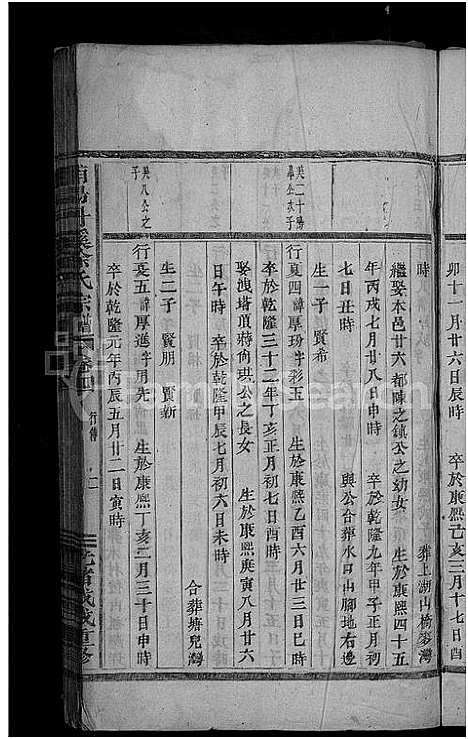 卯十一月廿六日戌時　卒於康熙己亥三月十七日酉
時　葬上湖山橋寮灣
繼娶木邑廿六都陳之鎮公之幼女　生於康熙四十五
年丙戌七月廿八日申時　卒於乾隆九年甲子正月初
七日丑時　與公合葬水口山腳地右邊
生一子　賢希
英二十陽
畢公次子
行夏四諱厚玢字彩玉　生於康熙乙酉六月廿三日巳時
卒於乾隆三十二年丁亥正月初七日酉時
娶洩塔頂蔣尚珙公之長女　生於康熙庚寅八月廿六
日午時　卒於乾隆甲辰七月初六日未時
合葬塘兒灣
生二子　賢朋　賢新
英八公之
子
行夏五諱厚進字用先　生於康熙丁亥二月三十日申時
卒於乾隆元年丙辰五月廿二日寅時
氏宗譜
卷四
行傳
光緒　重修